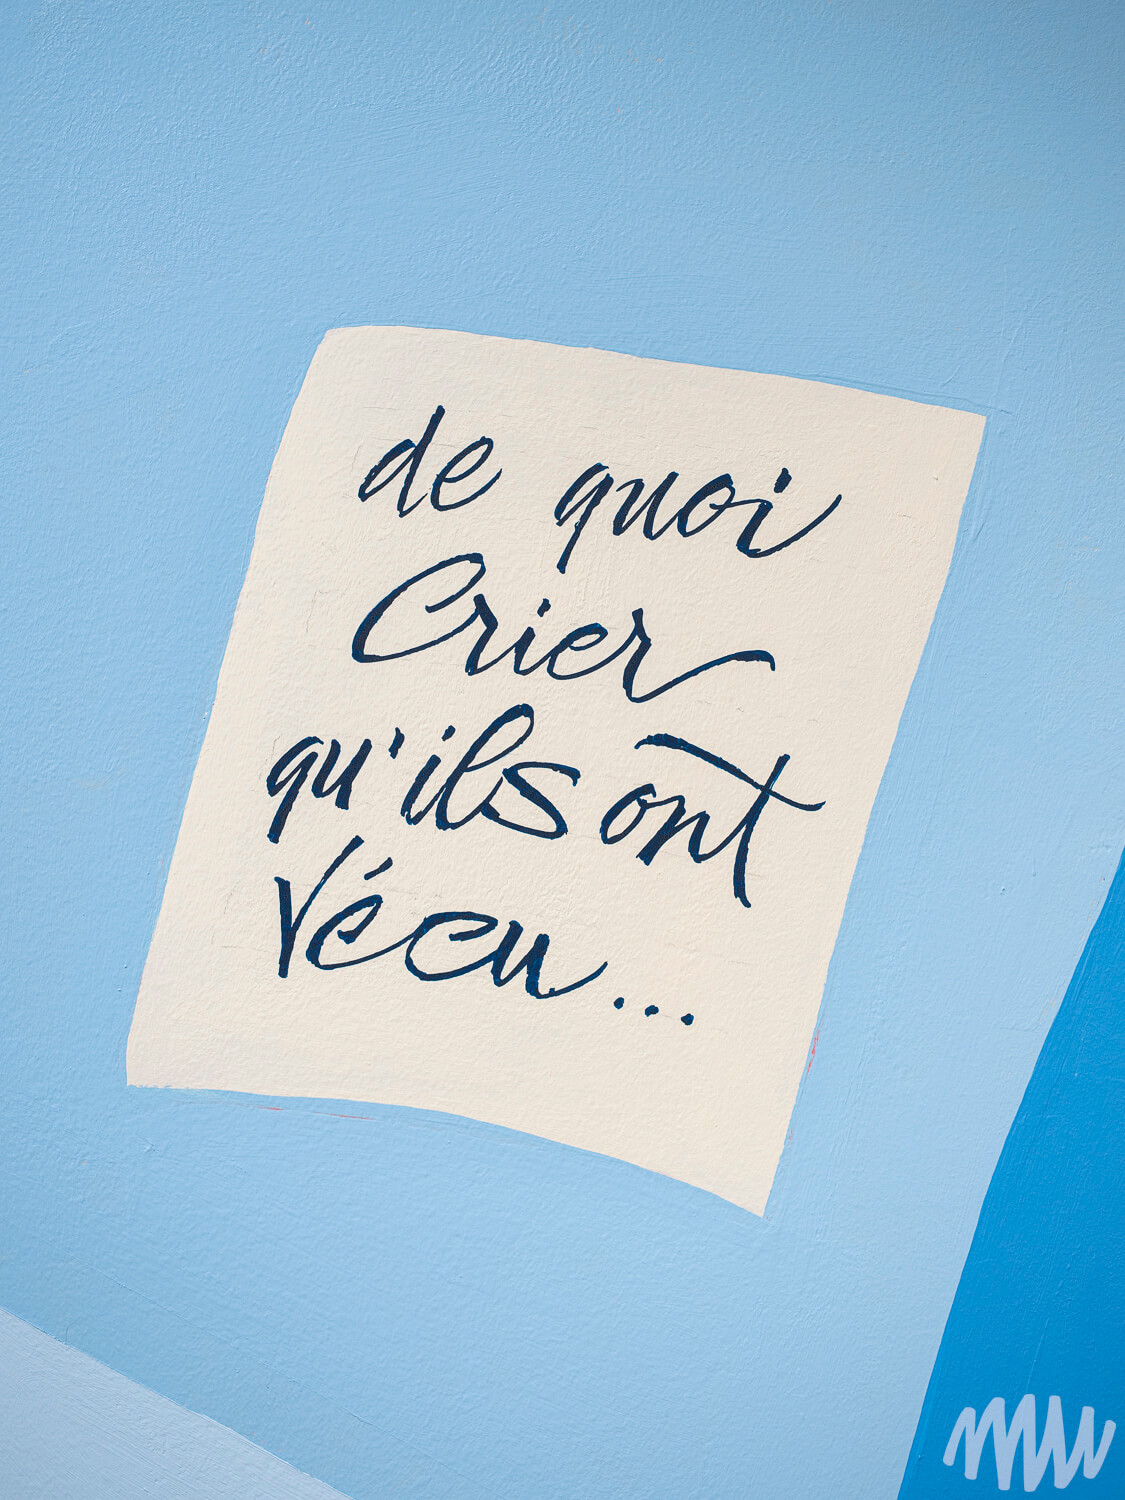 de quoi
Crier
qu'ils ont
Vécu...